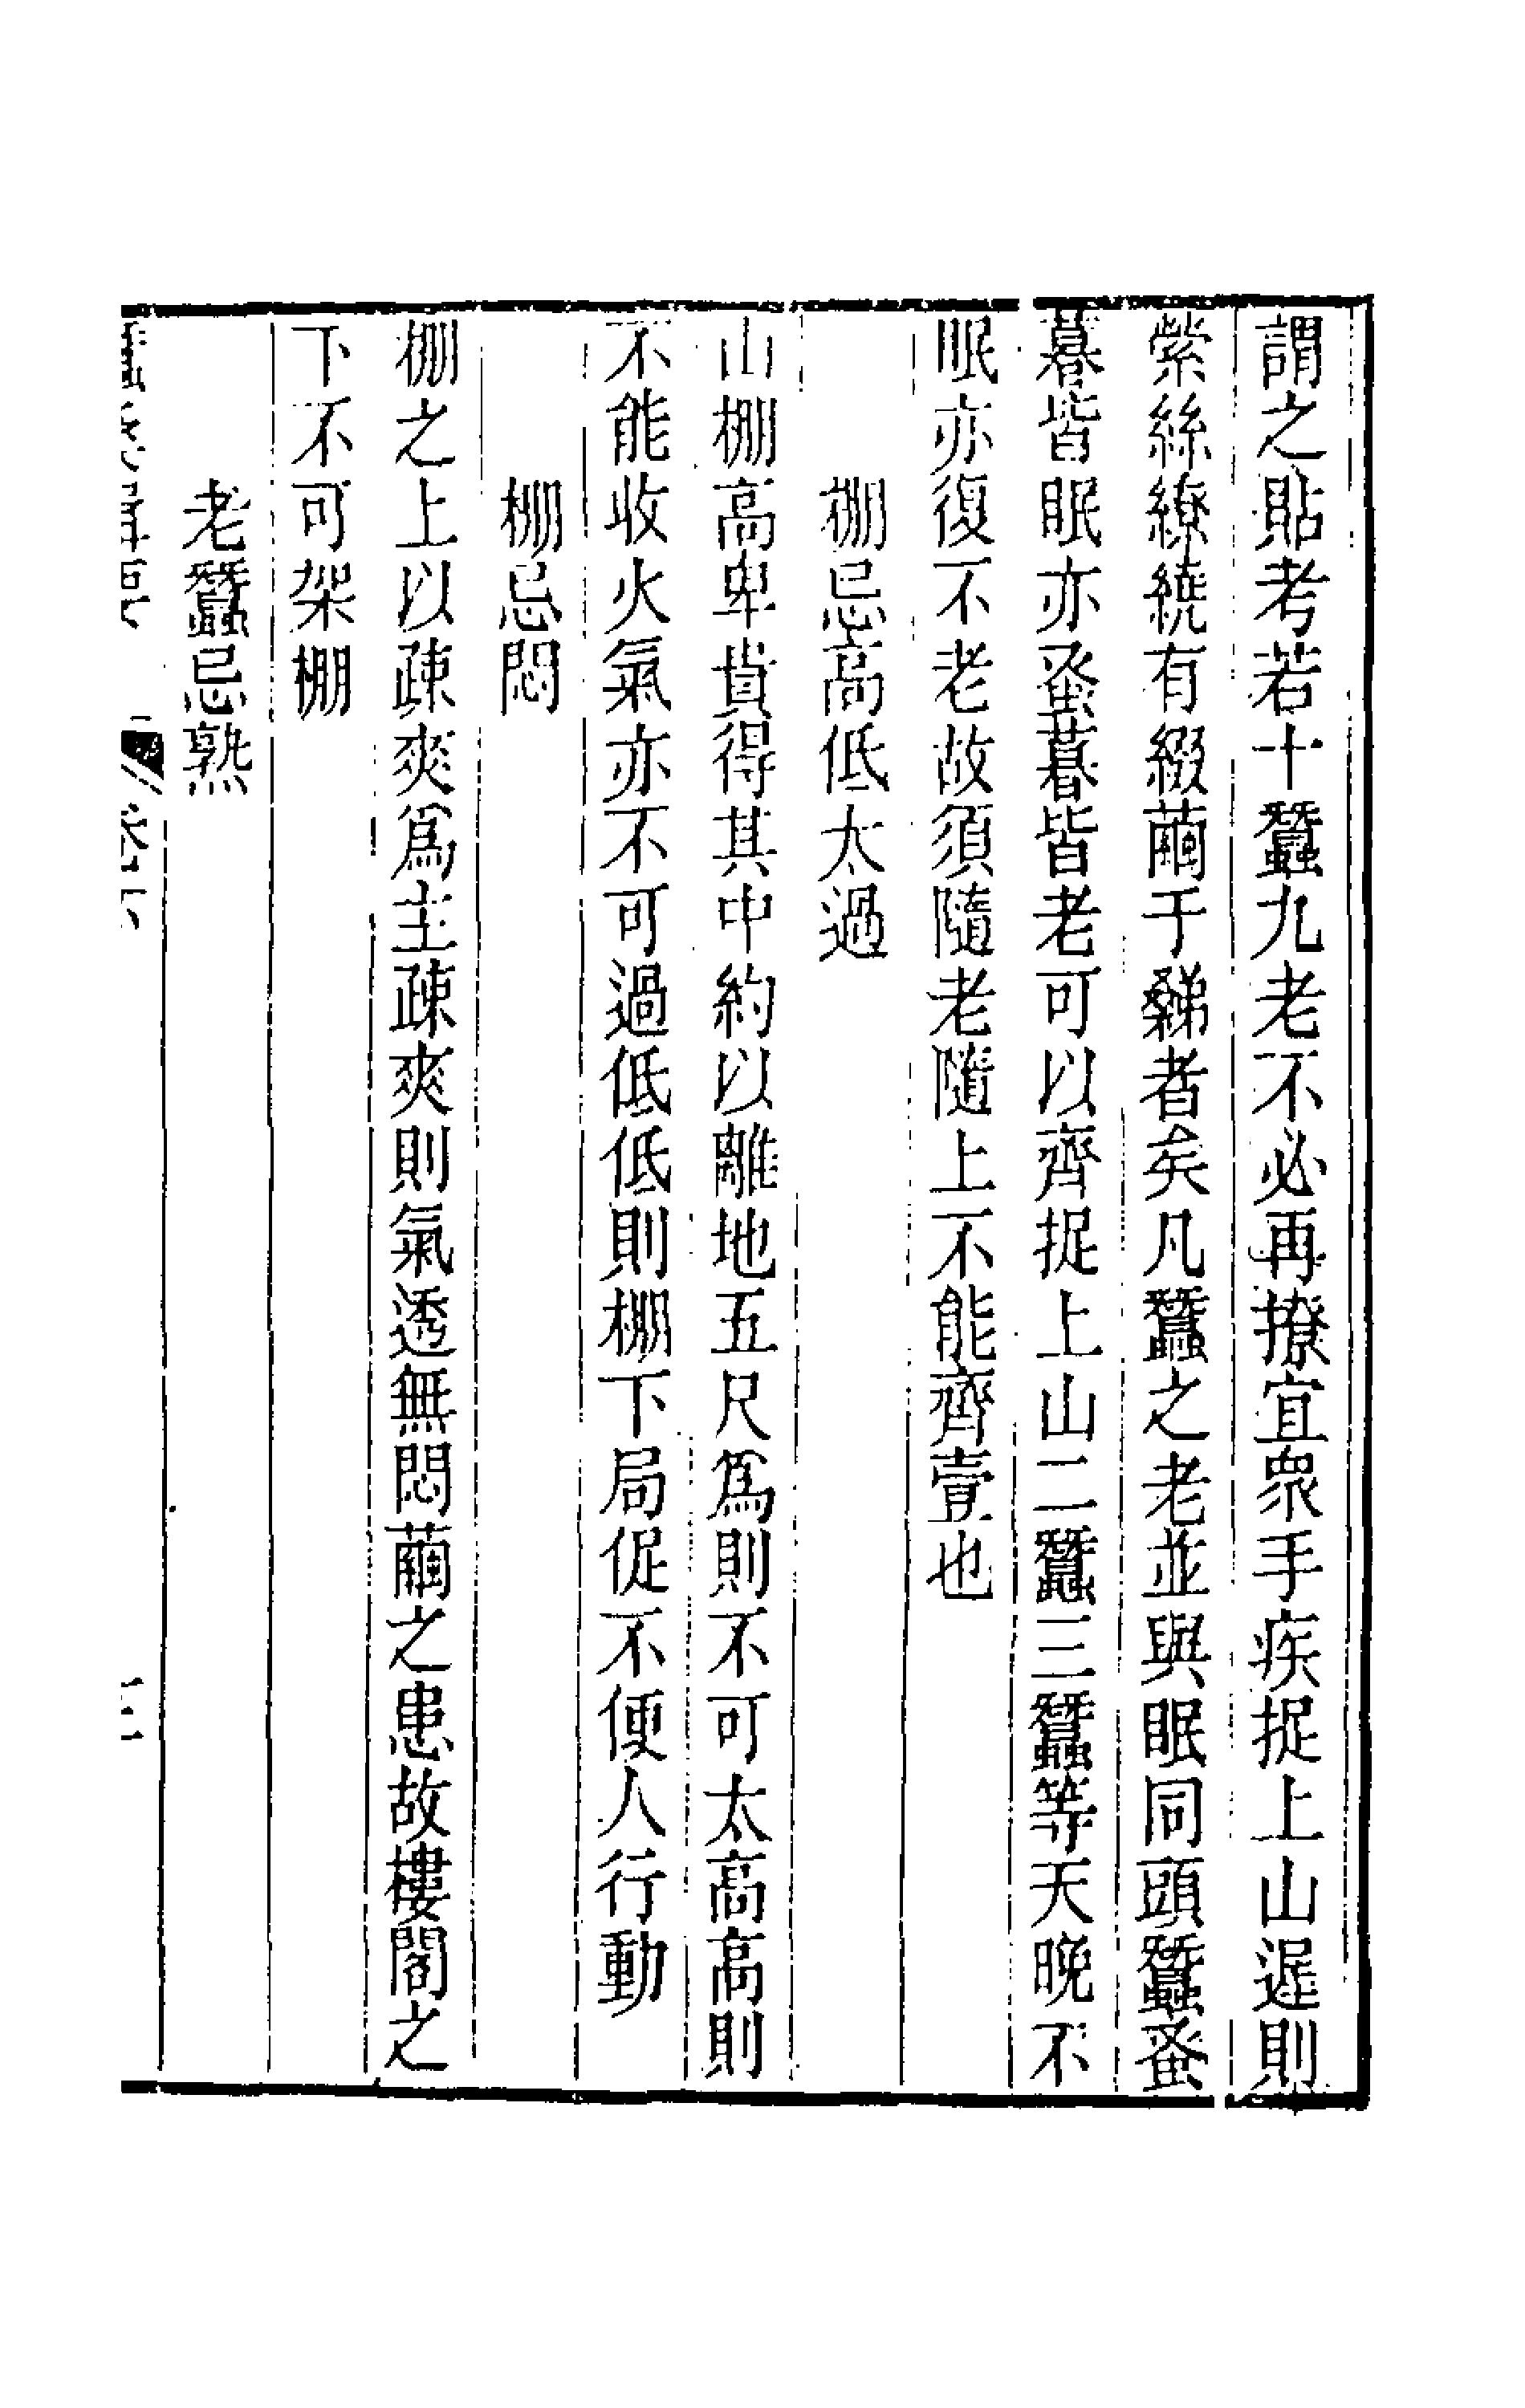 謂之貼考若十蠶九老不必再撩宜衆手疾捉上山遲則
縈絲繚繞有綴繭于䋴者矣凡蠶之老並與眠同頭蠶蚤
暮皆眠亦蚤暮皆老可以齊捉上山二蠶三蠶等天晚不
眠亦復不老故須隨老隨上不能齊壹也
棚忌高低太過
山棚高卑貴得其中約以離地五尺爲則不可太高高則
不能收火氣亦不可過低低則棚下局促不便人行動
棚忌悶
棚之上以疎爽爲主疎爽則氣透無悶繭之患故樓閣之
下不可架棚
老蠶忌熟